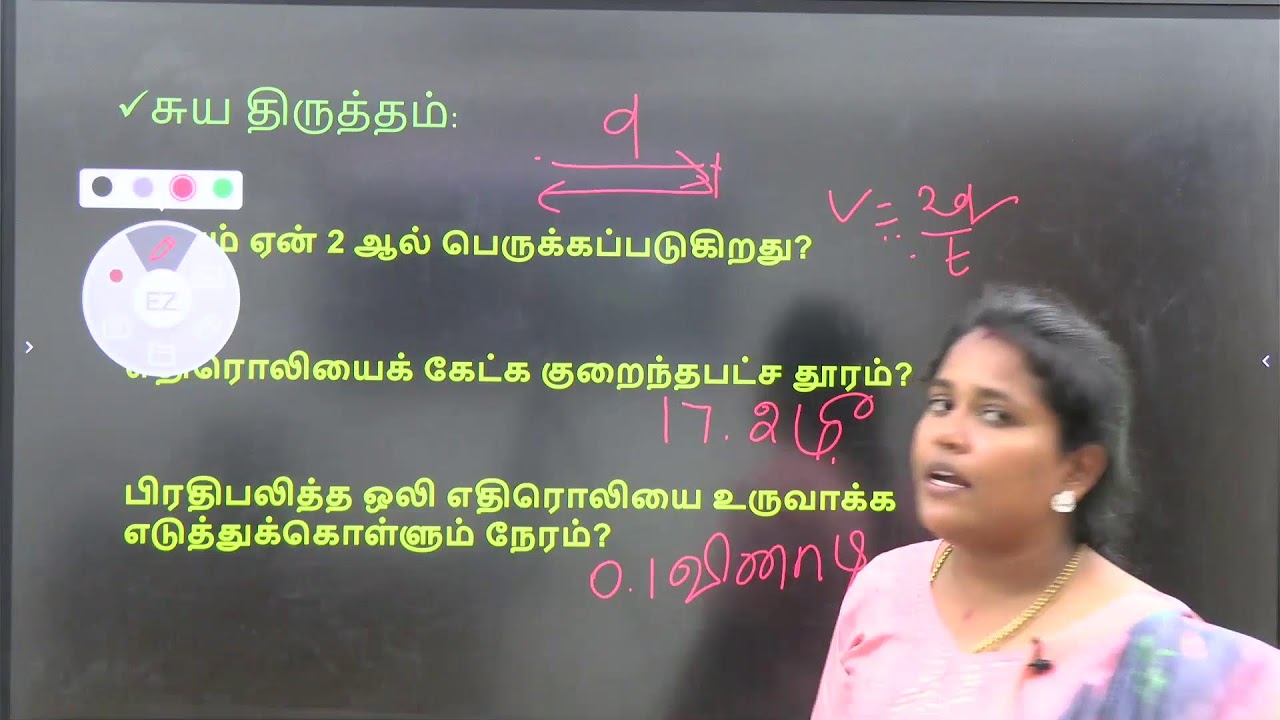 ✓சுய திருத்தம்:
d
ஏன் 2 ஆல் பெருக்கப்படுகிறது?
V = 2d
t
எதிரொலியைக் கேட்க குறைந்தபட்ச தூரம்?
17.2மீ
பிரதிபலித்த ஒலி எதிரொலியை உருவாக்க
எடுத்துக்கொள்ளும் நேரம்?
0.1வினாடி
EZ